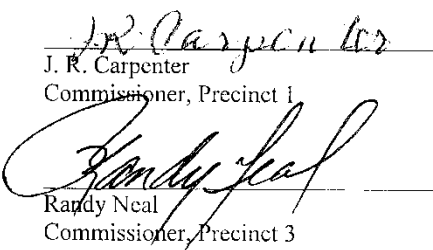 J R Carpenter
J. R. Carpenter
Commissioner, Precinct 1
Randy Neal
Randy Neal
Commissioner, Precinct 3